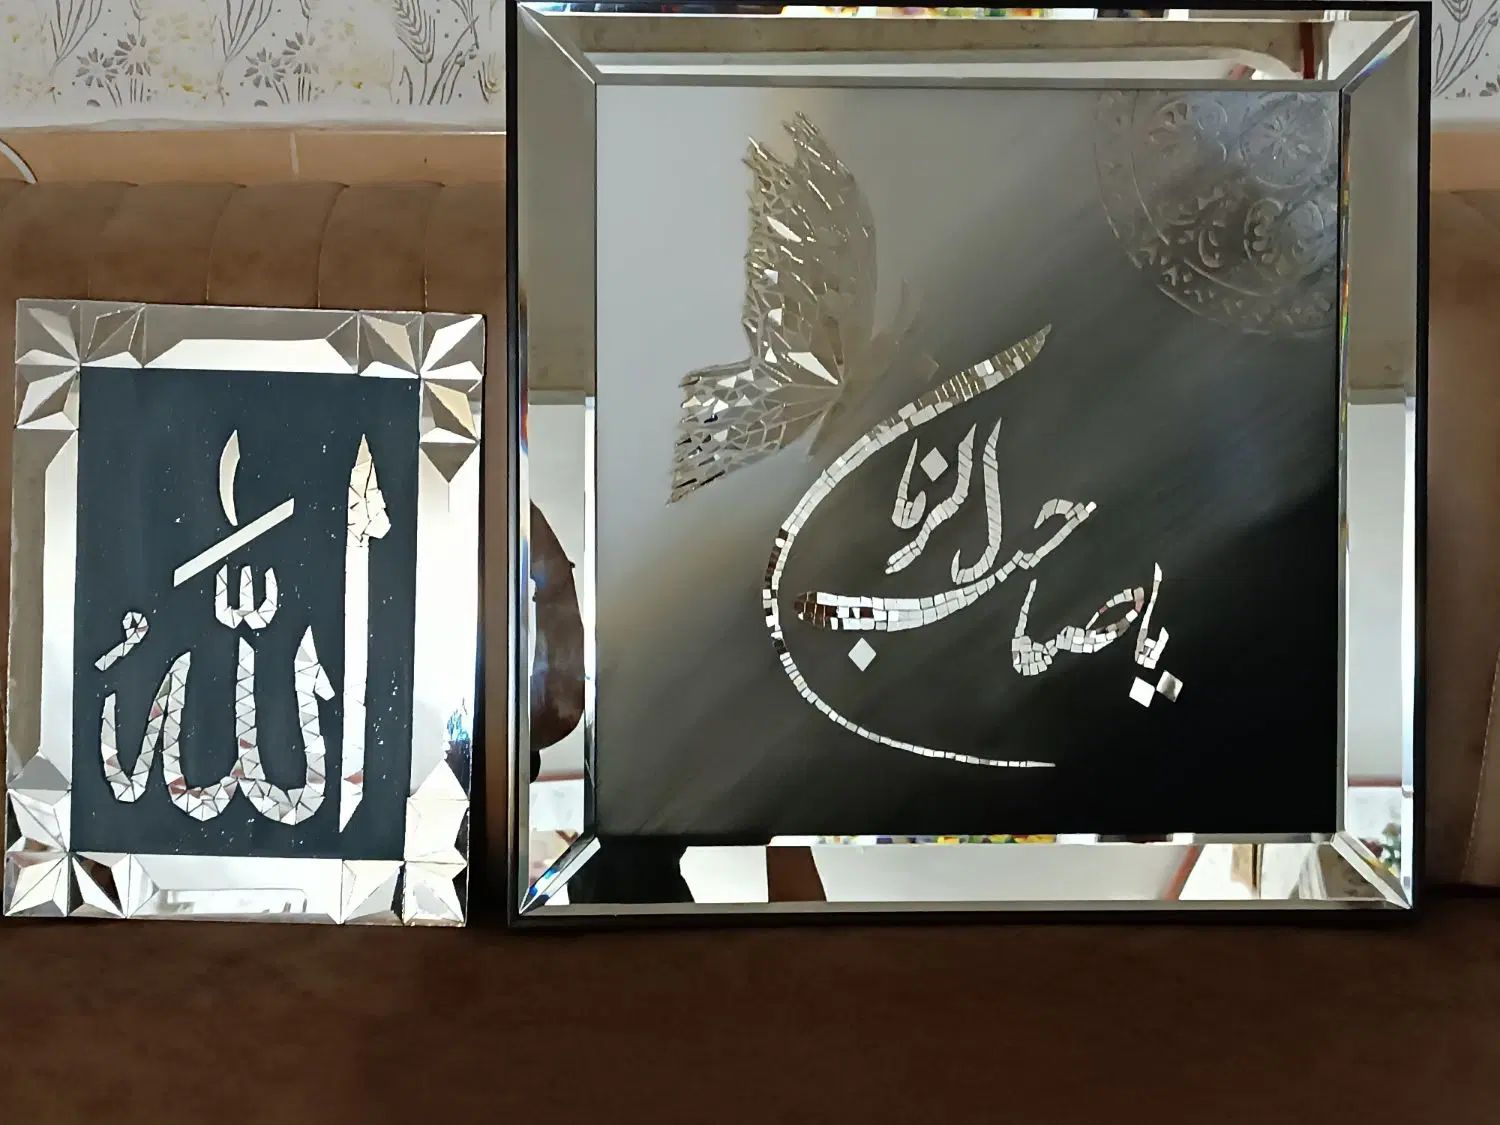 الله
یا صاحب الزمان